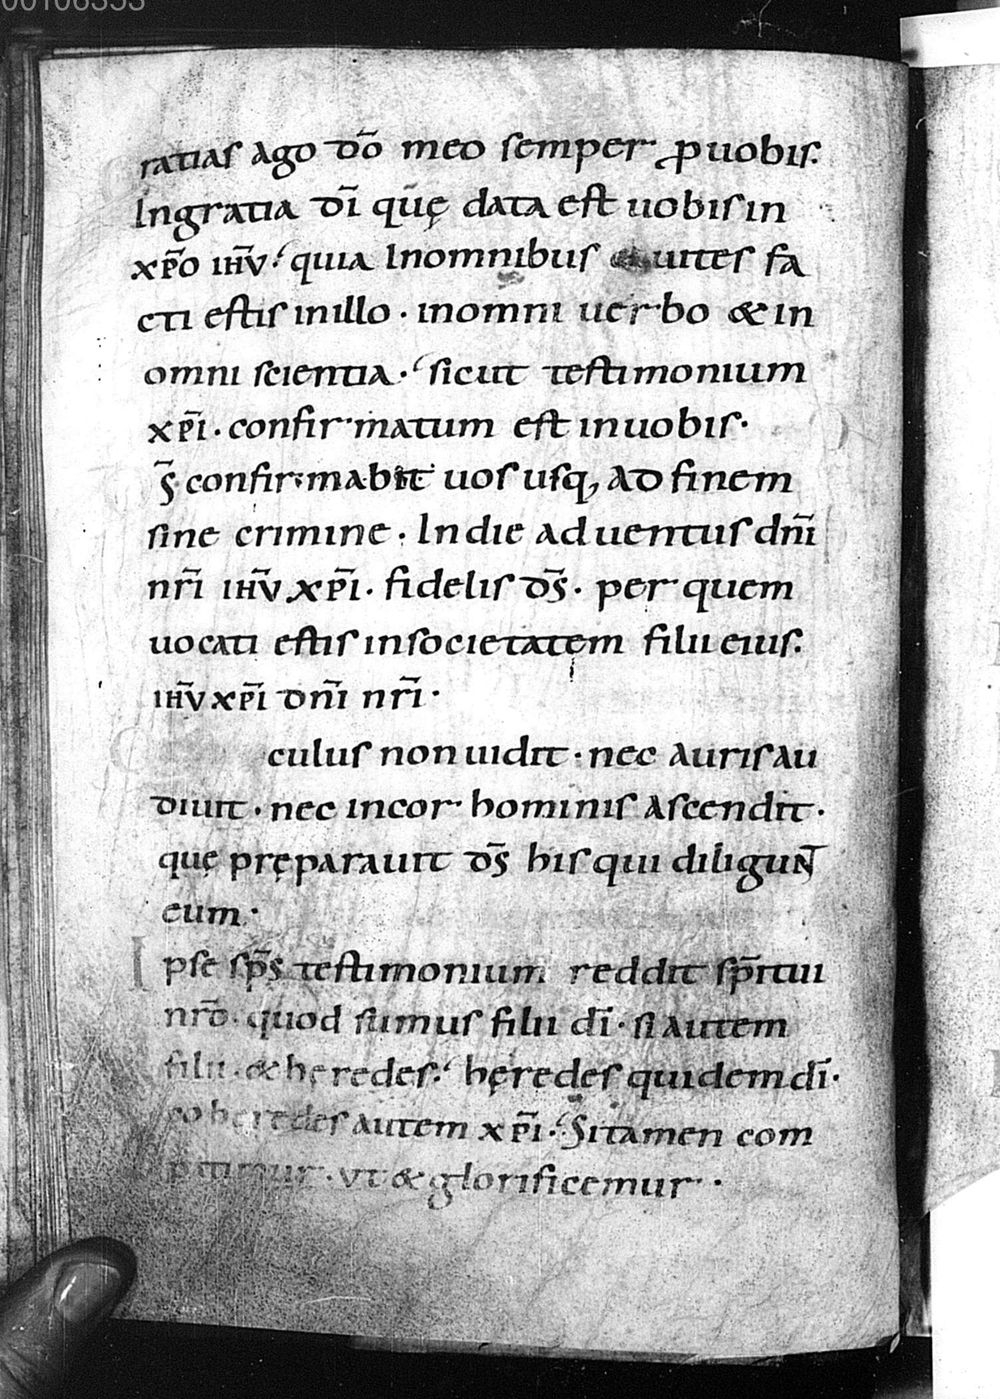 00106353
ratias ago dō meo semper p uobis.
In gratia dī quę data est uobis in
xp̄o ihū. quia In omnibus uites fa
cti estis in illo. in omni uerbo & in
omni scientia. sicut testimonium
xp̄i. confirmatum est in uobis.
s̄ confirmabit uos usq, ad finem
sine crimine. In die aduentus dn̄i
nr̄i ihū xp̄i. fidelis ds̄. per quem
uocati estis in societatem filii eius.
ihū xp̄i dn̄i nr̄i.
culus non uidit. nec auris au
diuit. nec in cor hominis ascendit.
quę pręparauit ds̄ his qui diligunt
eum.
Ipse sp̄s testimonium reddit sp̄itui
nr̄o. quod sumus filii dī. si autem
filii. & hęredes. hęredes quidem dī.
coheredes autem xp̄i. Si tamen com
patimur. ut & glorificemur.